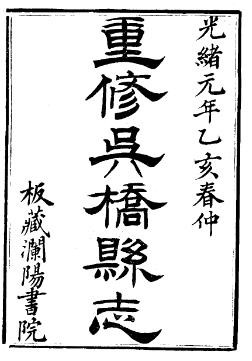 光緒元年乙亥春仲
重修吳橋縣志
板藏瀾陽書院